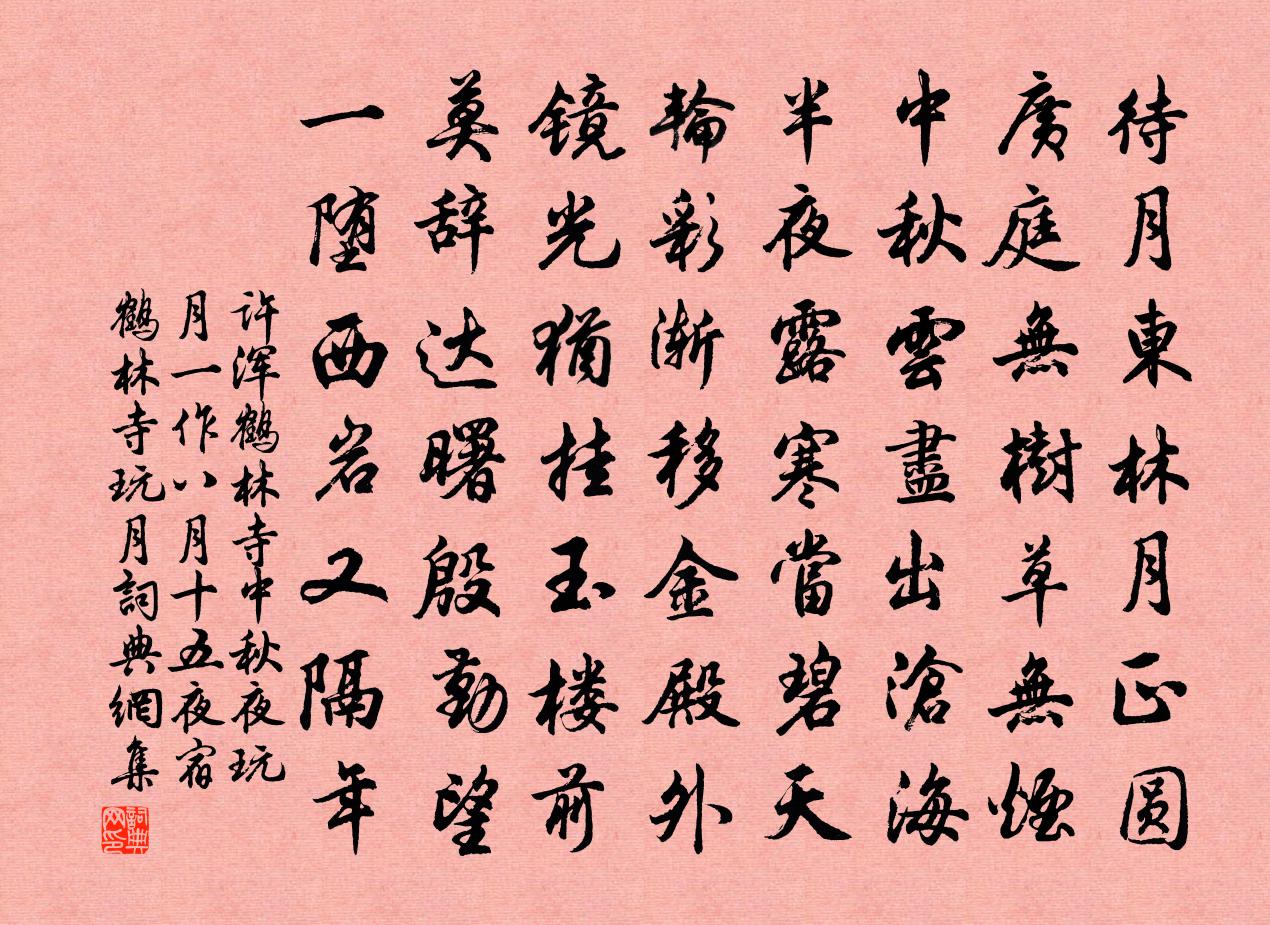 待月東林月正圆
廣庭無樹草無煙
中秋雲盡出滄海
半夜露寒當碧天
輪彩渐移金殿外
镜光猶挂玉楼前
莫辞达曙殷勤望
一堕西岩又隔年
许浑鶴林寺中秋夜玩
月一作八月十五夜宿
鶴林寺玩月詞典網集
詞典网印